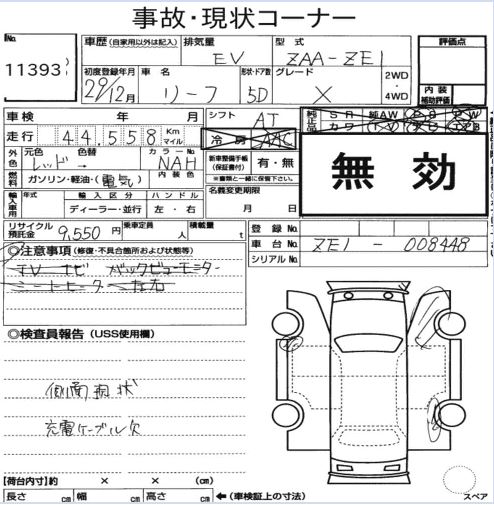 事故・現状コーナー
No. 11393
車歴 (自家用以外は記入) 排気量 EV 型式 ZAA-ZE1
評価点
初度登録年月 29/12月 車名 リーフ 形状・ドア数 5D グレード X 2WD・4WD
内装補助評価
車検 年 月 シフト AT
純正品 SR 純AW PS PW
カワ TV ナビ エアB
走行 44,558 Km マイル 冷房 AAC
外色 元色 レッド 色替 → カラーNo. NAH
新車整備手帳(保証書付) 有・無
※書類と一緒に保管下さい。
無効
燃料 ガソリン・軽油・(電気) 内装色
名義変更期限 月 日
輸入車用 年式 輸入区分 ディーラー・並行 ハンドル 左・右
リサイクル預託金 9,550円 乗車定員 人 積載量 t
登録No.
車台No. ZE1-008448
シリアルNo.
◎注意事項 (修復・不具合箇所および状態等)
TVナビ バックビューモニター
シートヒーター 左右
◎検査員報告 (USS使用欄)
側面現状
充電ケーブル欠
【荷台内寸】約 × × (cm)
長さ cm 幅 cm 高さ cm ←(車検証上の寸法)
スペア